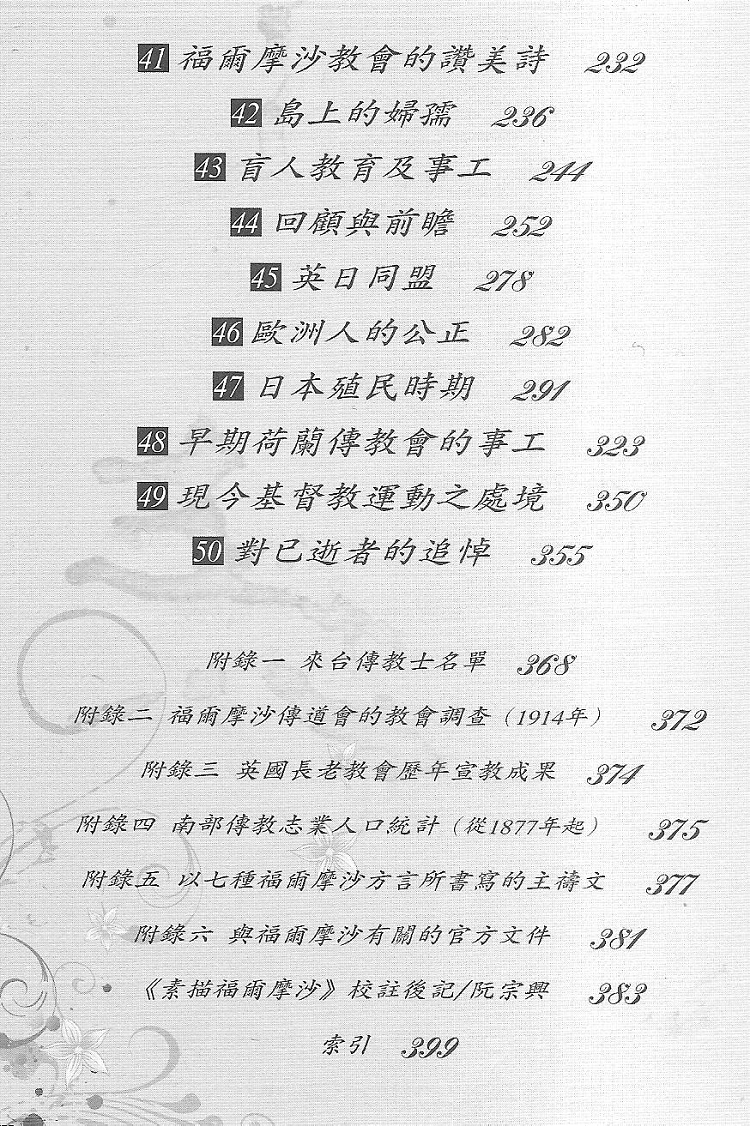 41 福爾摩沙教會的讚美詩 232
42 島上的婦孺 236
43 盲人教育及事工 244
44 回顧與前瞻 252
45 英日同盟 278
46 歐洲人的公正 282
47 日本殖民時期 291
48 早期荷蘭傳教會的事工 323
49 現今基督教運動之處境 350
50 對已逝者的追悼 355
附錄一 來台傳教士名單 368
附錄二 福爾摩沙傳道會的教會調查（1914年） 372
附錄三 英國長老教會歷年宣教成果 374
附錄四 南部傳教志業人口統計（從1877年起） 375
附錄五 以七種福爾摩沙方言所書寫的主禱文 377
附錄六 與福爾摩沙有關的官方文件 381
《素描福爾摩沙》校註後記/阮宗興 383
索引 399